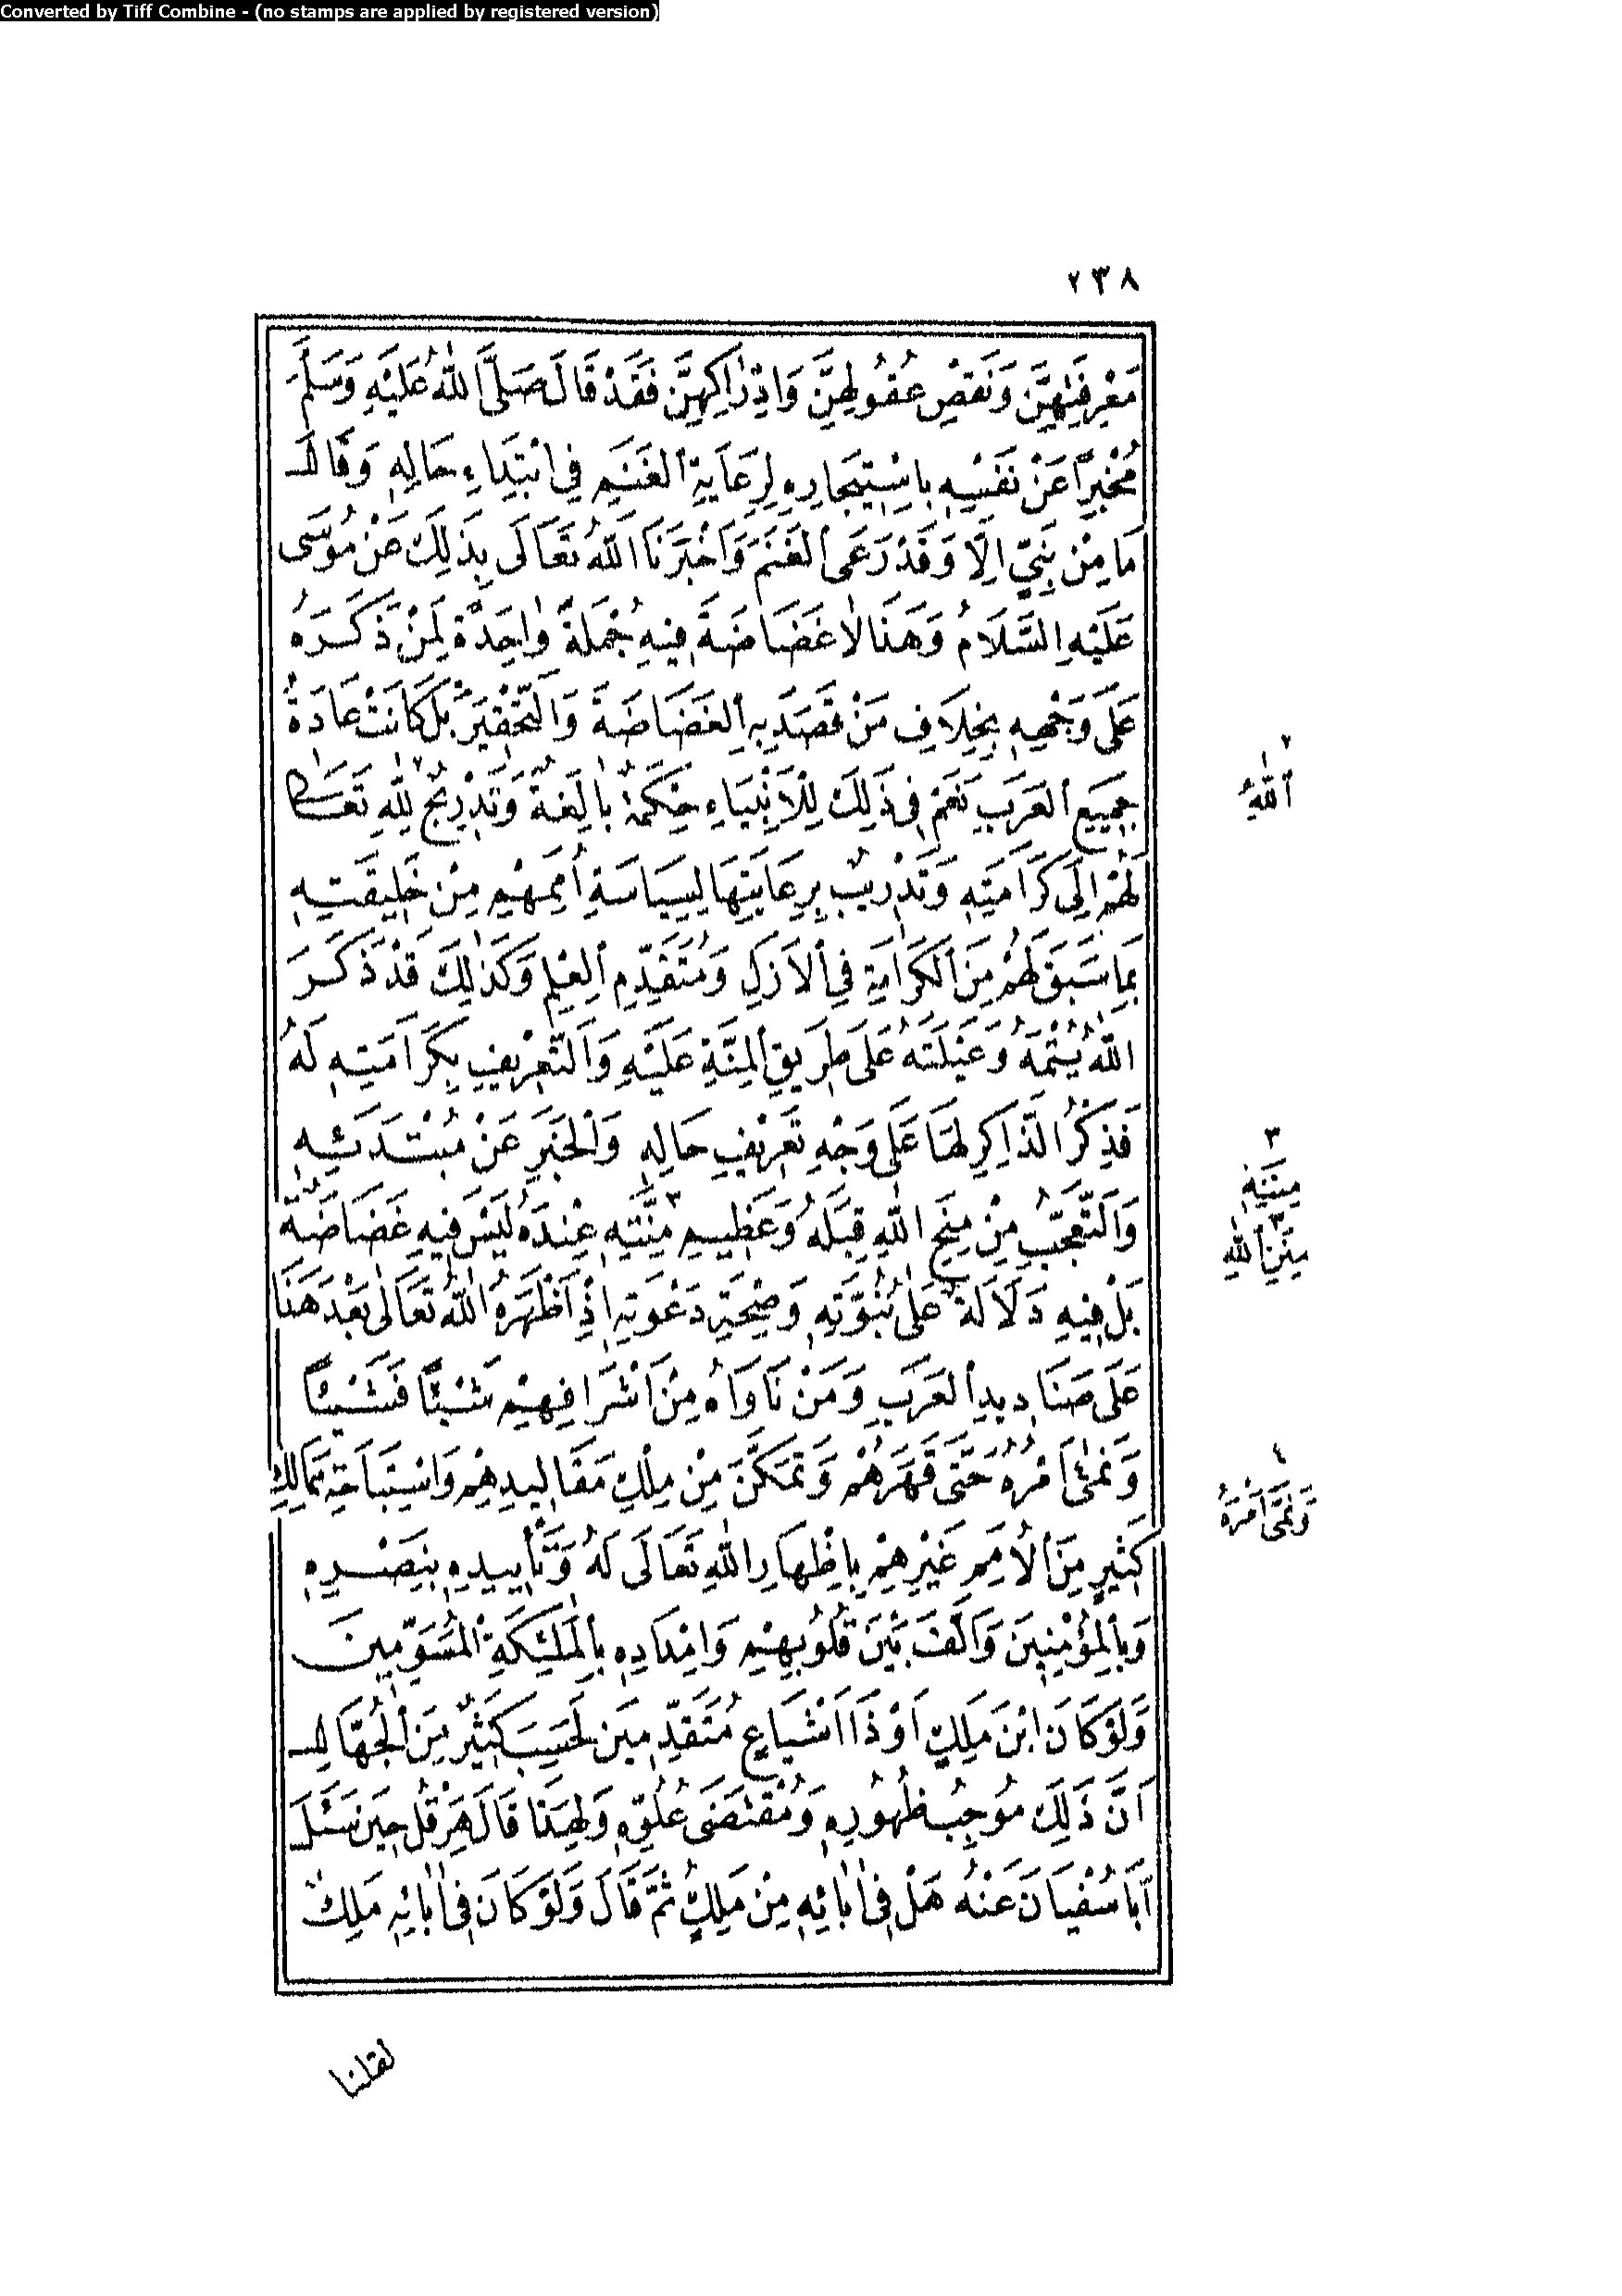 Converted by Tiff Combine - (no stamps are applied by registered version)
٢٣٨
مَعْرِفَتِهِنَّ وَنَقْصِ عُقُولِهِنَّ وَاِدْرَاكِهِنَّ فَقَدْ قَالَ صَلَّى اللّٰهُ عَلَيْهِ وَسَلَّمَ
مُخْبِرًا عَنْ نَفْسِهِ بِاسْتِيجَارِهِ لِرِعَايَةِ الْغَنَمِ فِي ابْتِدَاءِ حَالِهِ وَقَالَ
مَا مِنْ نَبِيٍّ اِلَّا وَقَدْ رَعَى الْغَنَمَ وَاَخْبَرَنَا اللّٰهُ تَعَالَى بِذَلِكَ عَنْ مُوسَى
عَلَيْهِ السَّلَامُ وَهَذَا لَا غَضَاضَةَ فِيهِ جُمْلَةً وَاحِدَةً لِمَنْ ذَكَرَهُ
عَلَى وَجْهِهِ بِخِلَافِ مَنْ قَصَدَ بِهِ الْغَضَاضَةَ وَالتَّحْقِيرَ بَلْ كَانَتْ عَادَةُ
جَمِيعِ الْعَرَبِ نَعَمْ فِي ذَلِكَ لِلْاَنْبِيَاءِ حِكْمَةٌ بَالِغَةٌ وَتَدْرِيجٌ لِلّٰهِ تَعَالَى
لَهُمْ اِلَى كَرَامَتِهِ وَتَدْرِيبٌ بِرِعَايَتِهَا لِسِيَاسَةِ اُمَمِهِمْ مِنْ خَلِيقَتِهِ
بِمَا سَبَقَ لَهُمْ مِنَ الْكَرَامَةِ فِي الْاَزَلِ وَمُتَقَدِّمِ الْعِلْمِ وَكَذٰلِكَ قَدْ ذَكَرَ
اللّٰهُ يُتْمَهُ وَعَيْلَتَهُ عَلَى طَرِيقِ الْمِنَّةِ عَلَيْهِ وَالتَّعْرِيفِ بِكَرَامَتِهِ لَهُ
فَذِكْرُ الذَّاكِرِ لَهَا عَلَى وَجْهِ تَعْرِيفِ حَالِهِ وَالْخَبَرِ عَنْ مُبْتَدَئِهِ
وَالتَّعَجُّبِ مِنْ مِنَحِ اللّٰهِ قِبَلَهُ وَعَظِيمِ مِنَّتِهِ ٣ عِنْدَهُ لَيْسَ فِيهِ غَضَاضَةٌ
بَلْ فِيهِ دَلَالَةٌ عَلَى نُبُوَّتِهِ وَصِحَّةِ دَعْوَتِهِ اِذْ اَظْهَرَهُ اللّٰهُ تَعَالَى بَعْدَ هَذَا
عَلَى صَنَادِيدِ الْعَرَبِ وَمَنْ نَاوَاهُ مِنْ اَشْرَافِهِمْ شَيْئًا فَشَيْئًا
وَنَمَى اَمْرُهُ حَتَّى قَهَرَهُمْ وَتَمَكَّنَ مِنْ مِلْكِ مَقَالِيدِهِمْ وَاسْتِبَاحَةِ مَمَالِكِ
كَثِيرٍ مِنَ الْاُمَمِ غَيْرِهِمْ بِاِظْهَارِ اللّٰهِ تَعَالَى لَهُ وَتَأْيِيدِهِ بِنَصْرِهِ
وَبِالْمُؤْمِنِينَ وَاَلَّفَ بَيْنَ قُلُوبِهِمْ وَاِمْدَادِهِ بِالْمَلٰئِكَةِ الْمُسَوِّمِينَ
وَلَوْ كَانَ ابْنَ مَلِكٍ اَوْ ذَا اَشْيَاعٍ مُتَقَدِّمِينَ لَحَسِبَ كَثِيرٌ مِنَ الْجُهَّالِ
اَنَّ ذَلِكَ مُوجِبُ ظُهُورِهِ وَمُقْتَضَى عُلُوِّهِ وَلِهَذَا قَالَ هِرَقْلُ حِينَ سَئَلَ
اَبَا سُفْيَانَ عَنْهُ هَلْ فِي اٰبَائِهِ مِنْ مَلِكٍ ثُمَّ قَالَ وَلَوْ كَانَ فِي اٰبَائِهِ مَلِكٌ
٢
اللّٰهِ
٣
مِنَنِهِ
٣
مِنَنِ اللّٰهِ
٤
وَنَمَّى اَمْرَهُ
لقلنا